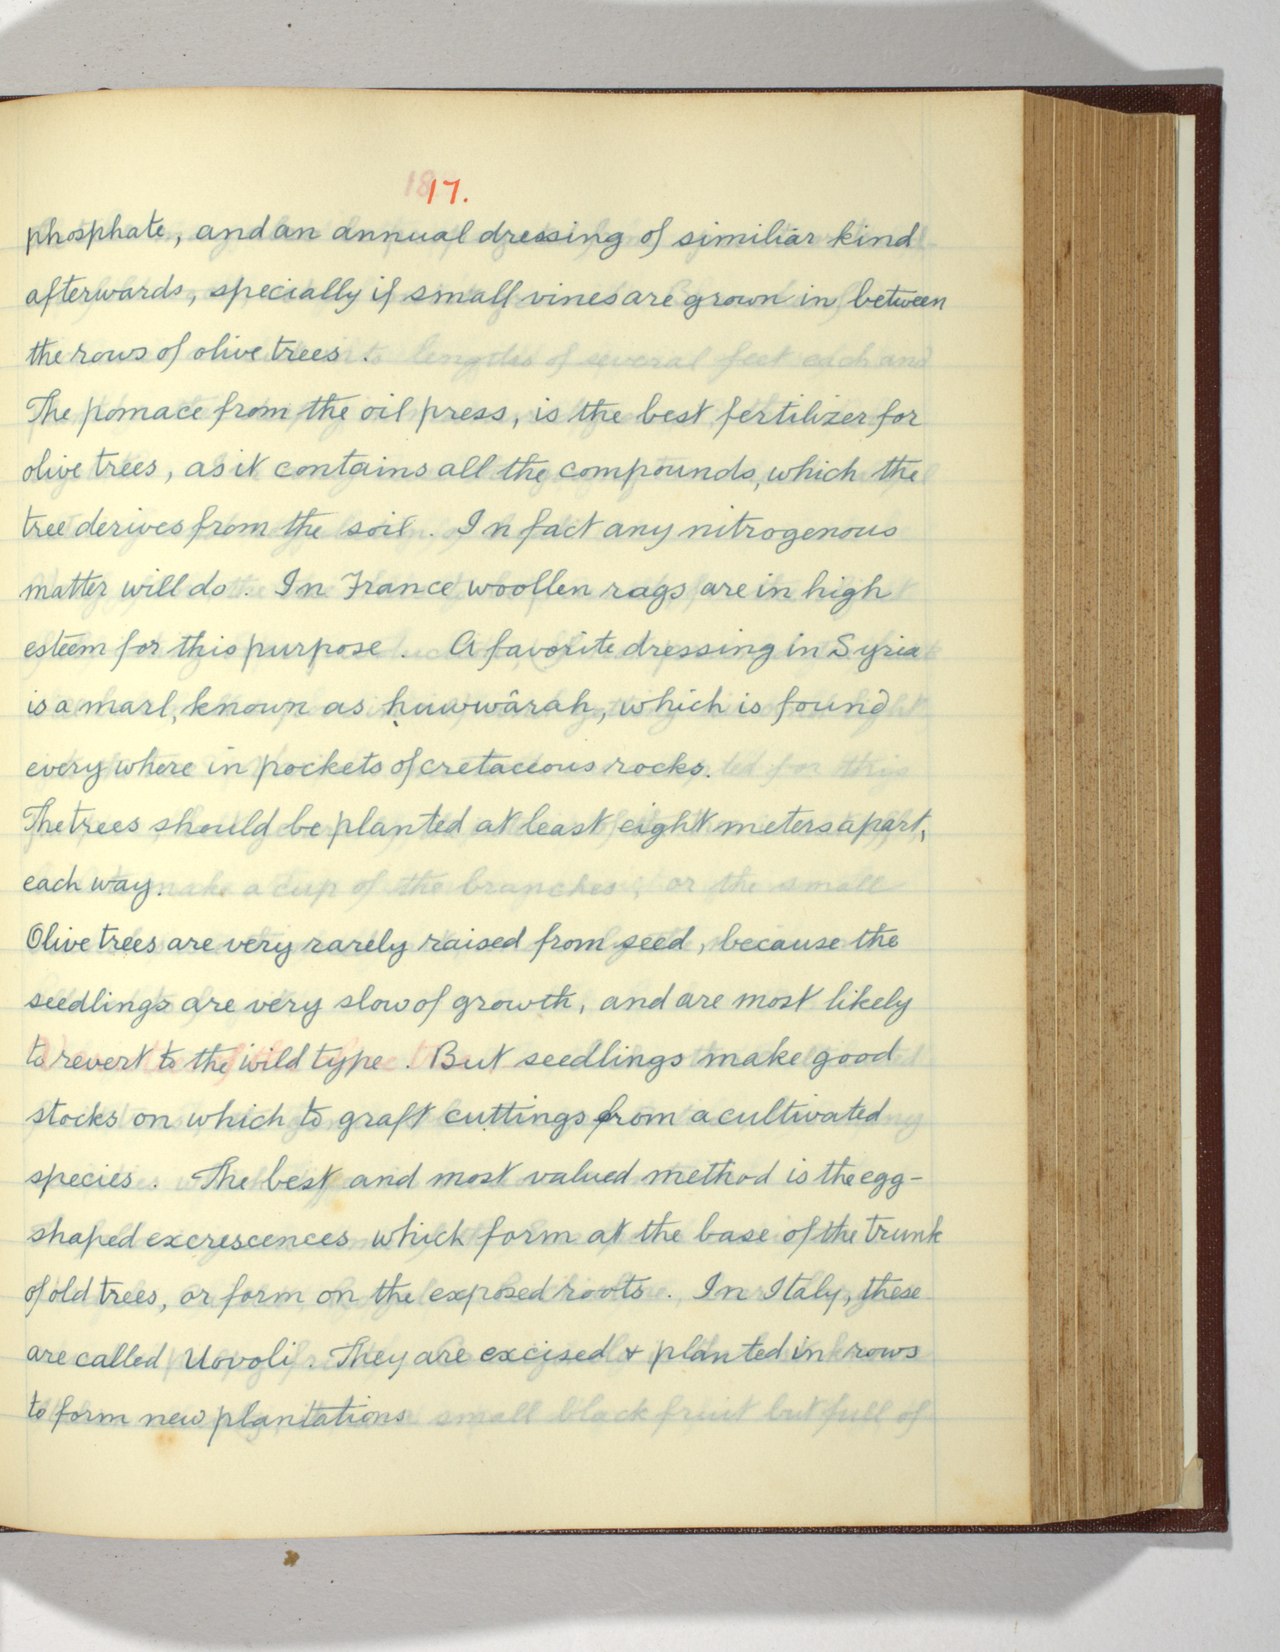 17.
phosphate, and an annual dressing of similiar kind
afterwards, specially if small vines are grown in between
the rows of olive trees.
The pomace from the oil press, is the best fertilizer for
olive trees, as it contains all the compounds, which the
tree derives from the soil. In fact any nitrogenous
matter will do. In France woollen rags are in high
esteem for this purpose. A favorite dressing in Syria
is a marl, known as ḥuwwârah, which is found
every where in pockets of cretaceous rocks.
The trees should be planted at least eight meters apart,
each way.
Olive trees are very rarely raised from seed, because the
seedlings are very slow of growth, and are most likely
to revert to the wild type. But seedlings make good
stocks on which to graft cuttings from a cultivated
species. The best and most valued method is the egg-
shaped excrescences which form at the base of the trunk
of old trees, or form on the exposed roots. In Italy, these
are called Uovoli. They are excised & planted in rows
to form new plantations